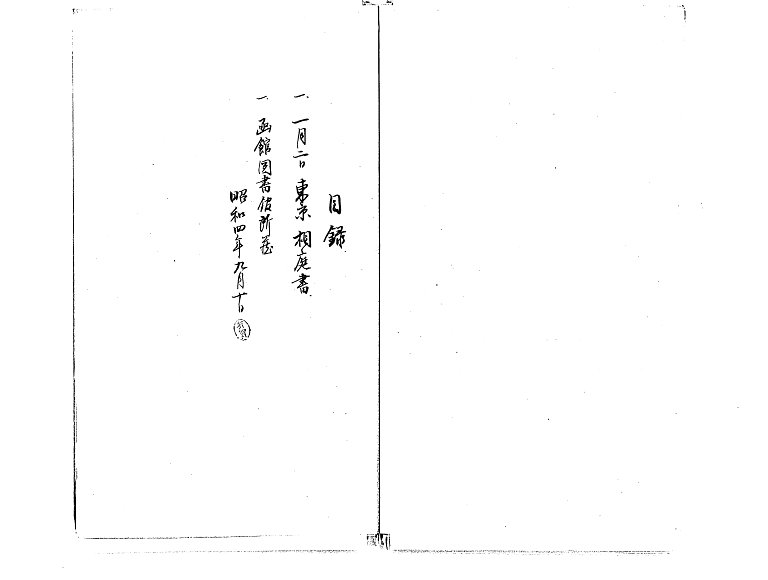 目録
一、一月二日 東京 相庭書
一、函館図書館所蔵
昭和四年九月十日